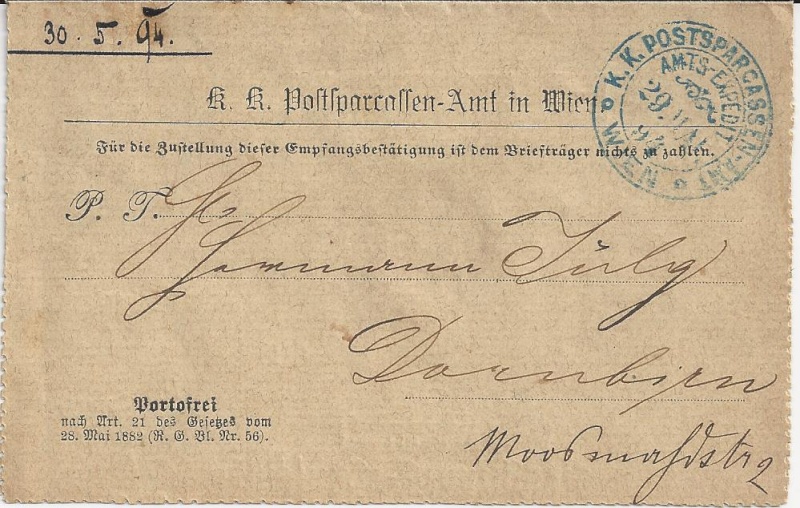 30. 5. 94.
K. K. POSTSPARCASSEN-AMT
WIEN
AMTS-EXPEDIT
29. MAI
94
K. K. Postsparcassen-Amt in Wien
Für die Zustellung dieser Empfangsbestätigung ist dem Briefträger nichts zu zahlen.
P. T.
Hermann Jülg
Dornbirn
Moosmahdstr 2
Portofrei
nach Art. 21 des Gesetzes vom
28. Mai 1882 (R. G. Bl. Nr. 56).